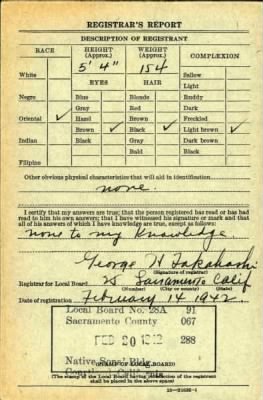 REGISTRAR'S REPORT
DESCRIPTION OF REGISTRANT
RACE HEIGHT (Approx.) WEIGHT (Approx.) COMPLEXION
5' 4" 154
White Sallow
EYES HAIR Light
Negro Blue Blonde Ruddy
Gray Red Dark
Oriental ✓ Hazel Brown Freckled
Brown ✓ Black ✓ Light brown ✓
Indian Gray Dark brown
Bald Black
Filipino
Other obvious physical characteristics that will aid in identification
none.
I certify that my answers are true; that the person registered has read or has had
read to him his own answers; that I have witnessed his signature or mark and that
all of his answers of which I have knowledge are true, except as follows:
none to my knowledge
George H Takahashi
(Signature of registrar)
Registrar for Local Board 28 Sacramento Calif
(Number) (City or county) (State)
Date of registration February 14 1942.
Local Board No. 28A 91
Sacramento County 067
FEB 20 1942 288
Native Sons Bldg.
(STAMP OF LOCAL BOARD)
(The stamp of the Local Board having jurisdiction of the registrant
shall be placed in the above space)